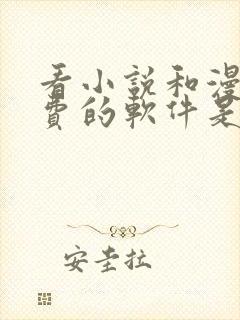 看小説和漫
費的軟件是
安圭拉